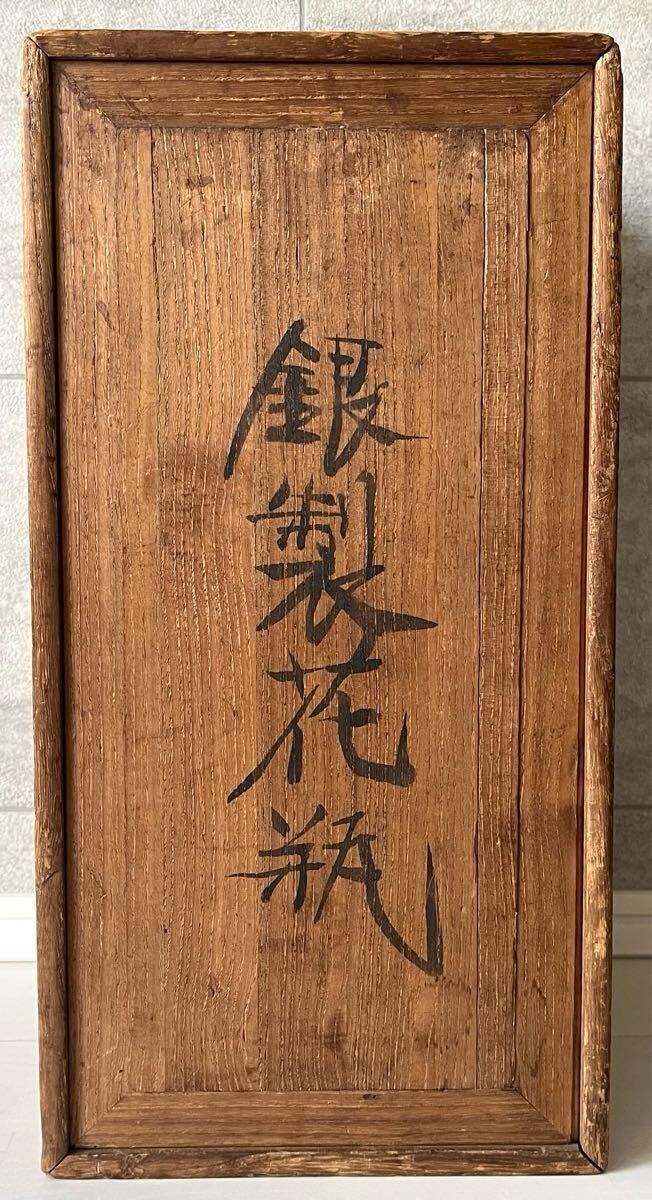 銀製花瓶